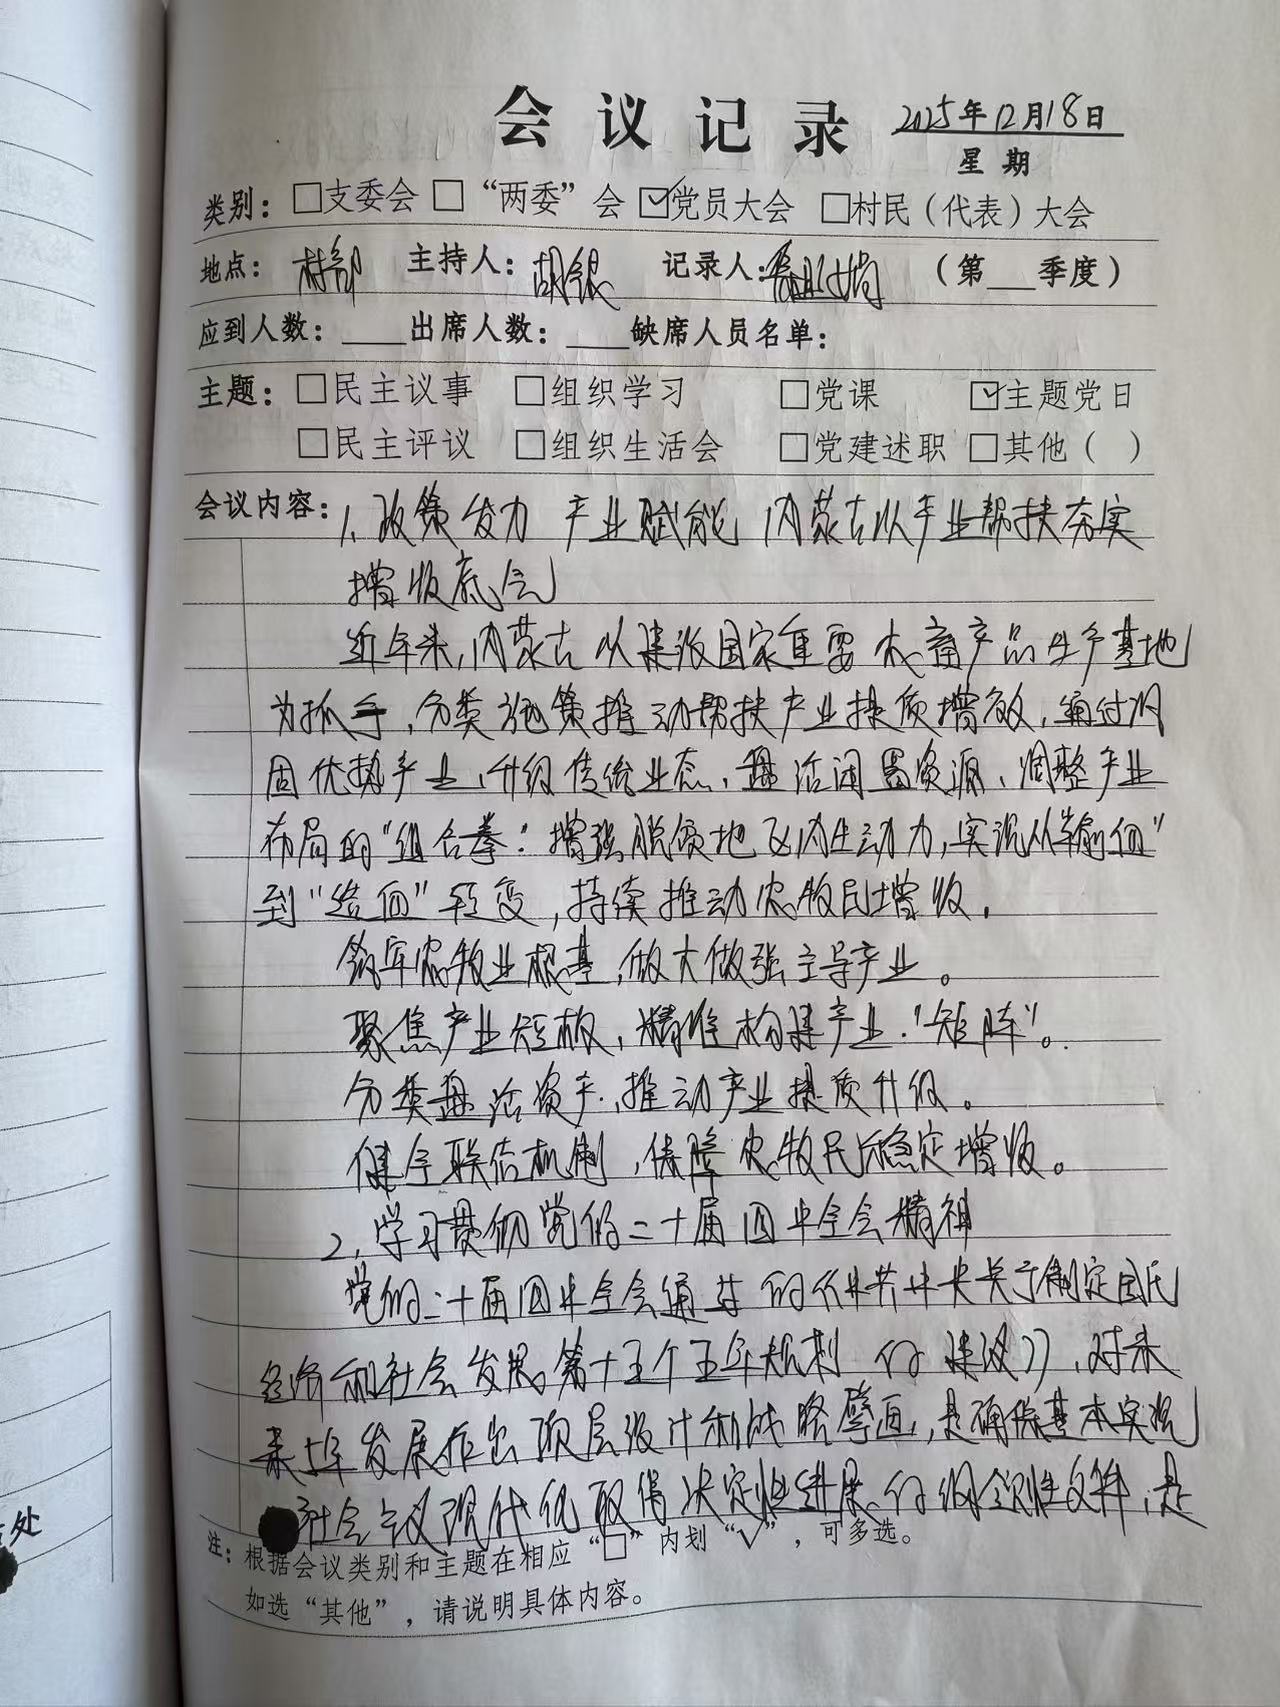 会议记录 2025年12月18日
星期
类别：□支委会 □“两委”会 ☑党员大会 □村民（代表）大会
地点：村部 主持人：胡银 记录人： （第___季度）
应到人数：____出席人数：____缺席人员名单：
主题：□民主议事 □组织学习 □党课 ☑主题党日
□民主评议 □组织生活会 □党建述职 □其他（ ）
会议内容：1、政策发力 产业赋能 内蒙古以产业帮扶夯实
增收底气
近年来，内蒙古以建设国家重要农畜产品生产基地
为抓手，分类施策推动帮扶产业提质增效，通过巩
固优势产业、升级传统业态、盘活闲置资源、调整产业
布局的“组合拳”增强脱贫地区内生动力，实现从“输血”
到“造血”转变，持续推动农牧民增收。
筑牢农牧业根基，做大做强主导产业。
聚焦产业短板，精准构建产业“矩阵”。
分类盘活资产，推动产业提质升级。
健全联结机制，保障农牧民稳定增收。
2、学习贯彻党的二十届四中全会精神
党的二十届四中全会通过的《中共中央关于制定国民
经济和社会发展第十五个五年规划的建议》，对未
来五年发展作出顶层设计和战略擘画，是确保基本实现
社会主义现代化取得决定性进展的纲领性文件，是
注：根据会议类别和主题在相应“□”内划“√”，可多选。
如选“其他”，请说明具体内容。
处